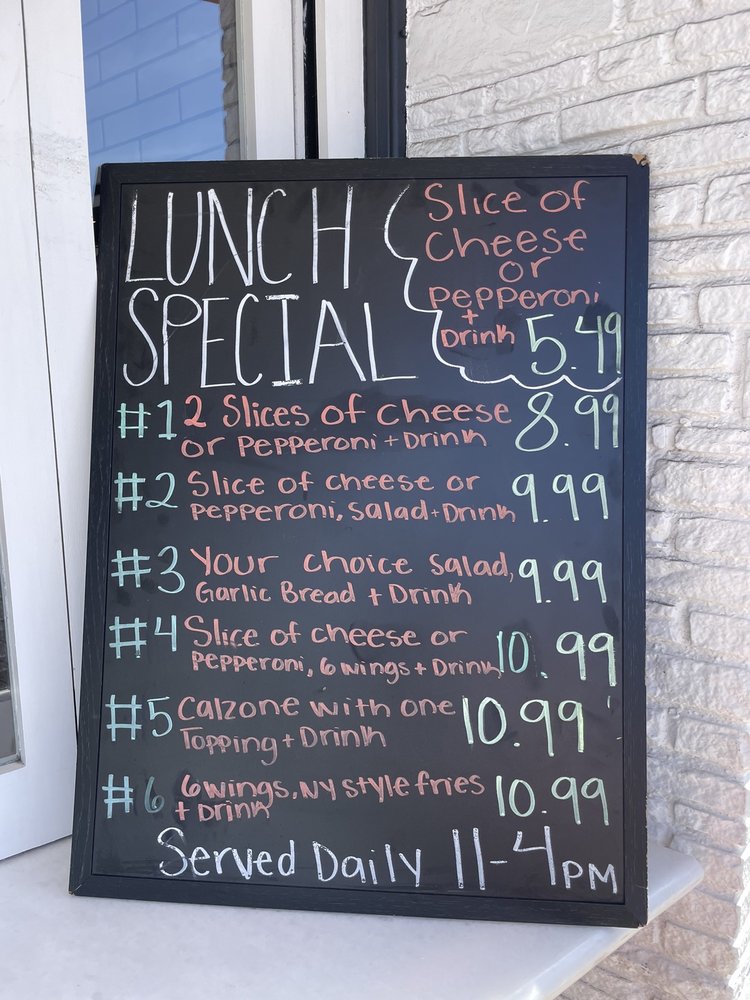 LUNCH
SPECIAL
Slice of
Cheese
or
pepperoni
+
Drink 5.49
#1 2 Slices of cheese
or Pepperoni + Drink 8.99
#2 Slice of cheese or
pepperoni, Salad + Drink 9.99
#3 Your choice Salad,
Garlic Bread + Drink 9.99
#4 Slice of cheese or
pepperoni, 6 wings + Drink 10.99
#5 Calzone with one
Topping + Drink 10.99
#6 6 wings, NY style fries
+ Drink 10.99
Served Daily 11-4PM